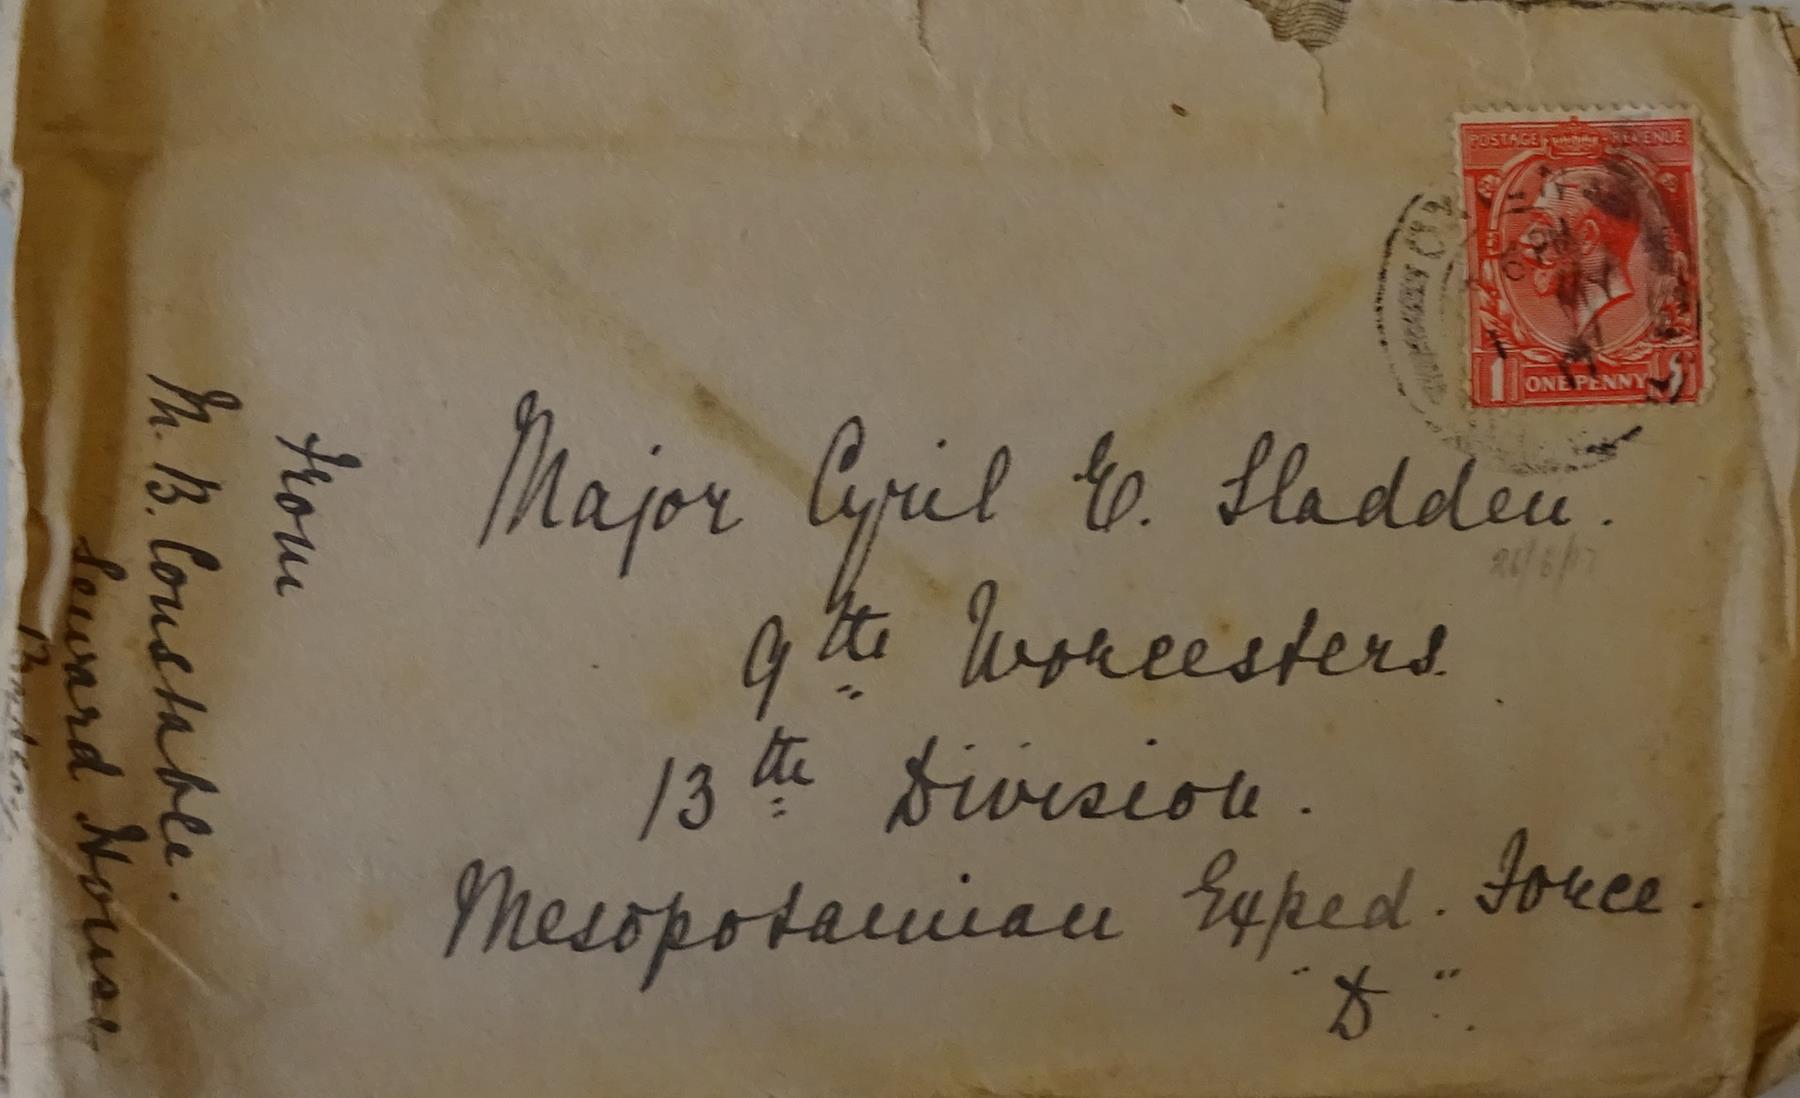 POSTAGE REVENUE
1 ONE PENNY
Major Cyril E. Sladden.
26/6/17
9th Worcesters.
13th Division.
Mesopotamian Exped. Force.
"D".
From
M. B. Constable.
Seward House